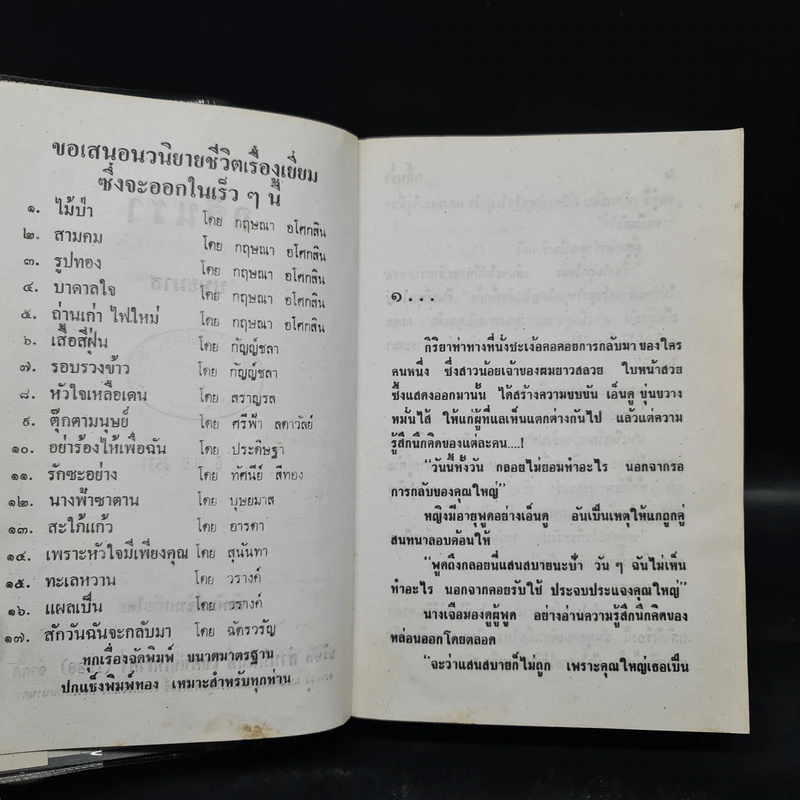 ขอเสนอนวนิยายชีวิตเรื่องเยี่ยม
ซึ่งจะออกในเร็ว ๆ นี้
๑. ไม้ป่า โดย กฤษณา อโศกสิน
๒. สามคม โดย กฤษณา อโศกสิน
๓. รูปทอง โดย กฤษณา อโศกสิน
๔. บาดาลใจ โดย กฤษณา อโศกสิน
๕. ถ่านเก่า ไฟใหม่ โดย กฤษณา อโศกสิน
๖. เสื้อสีฝุ่น โดย กัญญ์ชลา
๗. รอบรวงข้าว โดย กัญญ์ชลา
๘. หัวใจเหลือเดน โดย สราญรส
๙. ตุ๊กตามนุษย์ โดย ศรีฟ้า ลดาวัลย์
๑๐. อย่าร้องไห้เพื่อฉัน โดย ประดิษฐา
๑๑. รักซะอย่าง โดย ทัศนีย์ สีทอง
๑๒. นางฟ้าซาตาน โดย บุษยมาส
๑๓. สะใภ้แก้ว โดย อารดา
๑๔. เพราะหัวใจมีเพียงคุณ โดย สุนันทา
๑๕. ทะเลหวาน โดย วรางค์
๑๖. แผลเป็น โดย วรางค์
๑๗. สักวันฉันจะกลับมา โดย ฉัตรวรัญ
ทุกเรื่องจัดพิมพ์ ขนาดมาตรฐาน
ปกแข็งพิมพ์ทอง เหมาะสำหรับทุกท่าน
๑...
กิริยาท่าทางที่นั่งชะเง้อคอคอยการกลับมาของใคร
คนหนึ่ง ซึ่งสาวน้อยเจ้าของผมยาวสลวย ใบหน้าสวย
ซึ้งแสดงออกมานั้น ได้สร้างความขบขัน เอ็นดู ขุ่นขวาง
หมั่นไส้ ให้แก่ผู้ที่แลเห็นแตกต่างกันไป แล้วแต่ความ
รู้สึกนึกคิดของแต่ละคน....!
“วันนี้ทั้งวัน กลอยไม่ยอมทำอะไร นอกจากรอ
การกลับของคุณใหญ่”
หญิงมีอายุพูดอย่างเอ็นดู อันเป็นเหตุให้แกถูกคู่
สนทนาลอบค้อนให้
“พูดถึงกลอยนี่แสนสบายนะป้า วัน ๆ ฉันไม่เห็น
ทำอะไร นอกจากคอยรับใช้ ประจบประแจงคุณใหญ่”
นางเจือมองดูผู้พูด อย่างอ่านความรู้สึกนึกคิดของ
หล่อนออกโดยตลอด
“จะว่าแสนสบายก็ไม่ถูก เพราะคุณใหญ่เธอเป็น